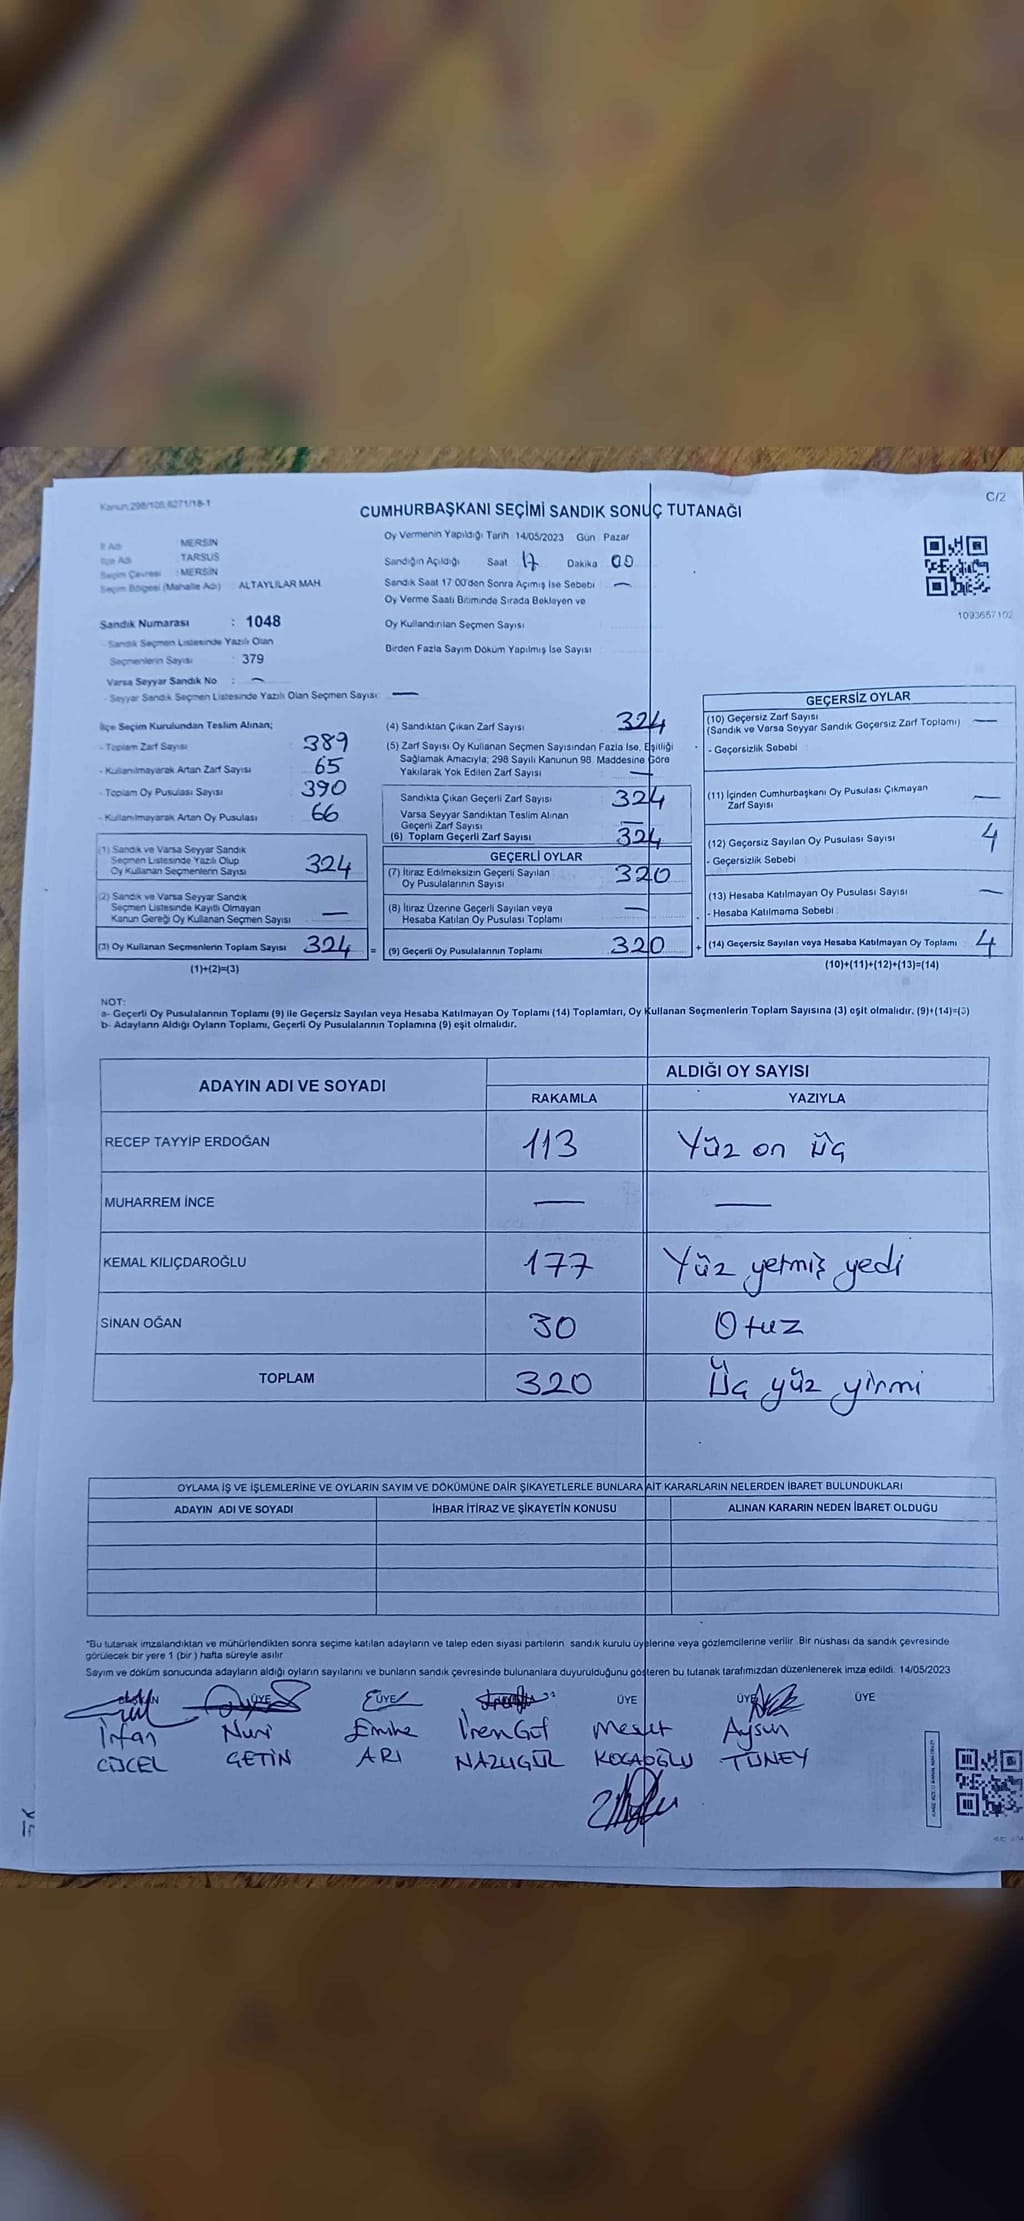 Kanun:298/105;6271/18-1
C/2
CUMHURBAŞKANI SEÇİMİ SANDIK SONUÇ TUTANAĞI
İl Adı : MERSİN
İlçe Adı : TARSUS
Seçim Çevresi : MERSİN
Seçim Bölgesi (Mahalle Adı) : ALTAYLILAR MAH.
Oy Vermenin Yapıldığı Tarih 14/05/2023 Gün Pazar
Sandığın Açıldığı Saat 17 Dakika 00
Sandık Saat 17:00'den Sonra Açımış İse Sebebi —
Oy Verme Saati Bitiminde Sırada Bekleyen ve
Oy Kullandırılan Seçmen Sayısı
Birden Fazla Sayım Döküm Yapılmış İse Sayısı
1093657102
Sandık Numarası : 1048
- Sandık Seçmen Listesinde Yazılı Olan
Seçmenlerin Sayısı : 379
Varsa Seyyar Sandık No : —
- Seyyar Sandık Seçmen Listesinde Yazılı Olan Seçmen Sayısı: —
İlçe Seçim Kurulundan Teslim Alınan;
- Toplam Zarf Sayısı 389
- Kullanılmayarak Artan Zarf Sayısı 65
- Toplam Oy Pusulası Sayısı 390
- Kullanılmayarak Artan Oy Pusulası 66
(1) Sandık ve Varsa Seyyar Sandık
Seçmen Listesinde Yazılı Olup
Oy Kullanan Seçmenlerin Sayısı 324
(2) Sandık ve Varsa Seyyar Sandık
Seçmen Listesinde Kayıtlı Olmayan
Kanun Gereği Oy Kullanan Seçmen Sayısı —
(3) Oy Kullanan Seçmenlerin Toplam Sayısı 324 =
(1)+(2)=(3)
(4) Sandıktan Çıkan Zarf Sayısı 324
(5) Zarf Sayısı Oy Kullanan Seçmen Sayısından Fazla İse, Eşitliği
Sağlamak Amacıyla, 298 Sayılı Kanunun 98. Maddesine Göre
Yakılarak Yok Edilen Zarf Sayısı —
Sandıkta Çıkan Geçerli Zarf Sayısı 324
Varsa Seyyar Sandıktan Teslim Alınan
Geçerli Zarf Sayısı —
(6) Toplam Geçerli Zarf Sayısı 324
GEÇERLİ OYLAR
(7) İtiraz Edilmeksizin Geçerli Sayılan
Oy Pusulalarının Sayısı 320
(8) İtiraz Üzerine Geçerli Sayılan veya
Hesaba Katılan Oy Pusulası Toplamı —
(9) Geçerli Oy Pusulalarının Toplamı 320 +
GEÇERSİZ OYLAR
(10) Geçersiz Zarf Sayısı
(Sandık ve Varsa Seyyar Sandık Geçersiz Zarf Toplamı) —
- Geçersizlik Sebebi
(11) İçinden Cumhurbaşkanı Oy Pusulası Çıkmayan
Zarf Sayısı —
(12) Geçersiz Sayılan Oy Pusulası Sayısı 4
- Geçersizlik Sebebi
(13) Hesaba Katılmayan Oy Pusulası Sayısı —
- Hesaba Katılmama Sebebi
(14) Geçersiz Sayılan veya Hesaba Katılmayan Oy Toplamı 4
(10)+(11)+(12)+(13)=(14)
NOT:
a- Geçerli Oy Pusulalarının Toplamı (9) ile Geçersiz Sayılan veya Hesaba Katılmayan Oy Toplamı (14) Toplamları, Oy Kullanan Seçmenlerin Toplam Sayısına (3) eşit olmalıdır. (9)+(14)=(3)
b- Adayların Aldığı Oyların Toplamı, Geçerli Oy Pusulalarının Toplamına (9) eşit olmalıdır.
ADAYIN ADI VE SOYADI
ALDIĞI OY SAYISI
RAKAMLA YAZIYLA
RECEP TAYYİP ERDOĞAN 113 Yüz on üç
MUHARREM İNCE — —
KEMAL KILIÇDAROĞLU 177 Yüz yetmiş yedi
SİNAN OĞAN 30 Otuz
TOPLAM 320 Üç yüz yirmi
OYLAMA İŞ VE İŞLEMLERİNE VE OYLARIN SAYIM VE DÖKÜMÜNE DAİR ŞİKAYETLERLE BUNLARA AİT KARARLARIN NELERDEN İBARET BULUNDUKLARI
ADAYIN ADI VE SOYADI İHBAR İTİRAZ VE ŞİKAYETİN KONUSU ALINAN KARARIN NEDEN İBARET OLDUĞU
*Bu tutanak imzalandıktan ve mühürlendikten sonra seçime katılan adayların ve talep eden siyasi partilerin sandık kurulu üyelerine veya gözlemcilerine verilir. Bir nüshası da sandık çevresinde
görülecek bir yere 1 (bir ) hafta süreyle asılır
Sayım ve döküm sonucunda adayların aldığı oyların sayılarını ve bunların sandık çevresinde bulunanlara duyurulduğunu gösteren bu tutanak tarafımızdan düzenlenerek imza edildi. 14/05/2023
BAŞKAN ÜYE ÜYE ÜYE ÜYE ÜYE
İrfan Nuri Emine İrenGöl Mesut Aysun
ÇETİN ARI NAZLIGÜL KOCAOĞLU TÜNEY